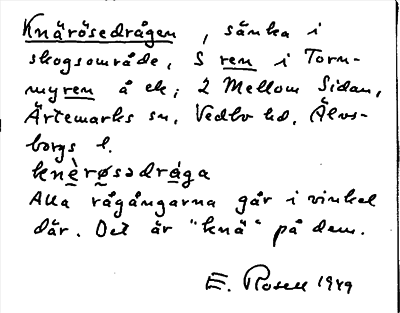 Knärösedrågen, sänka i
skogsområde, S ren i Torn-
myren å ek; 2 Mellom Sidan,
Ärtemarks sn, Vedbo hd, Älvs-
borgs l.
knè̱rø̱sədrá̱ga
Alla rågångarna går i vinkel
där. Det är "knä" på dem.
E. Rosell 1949